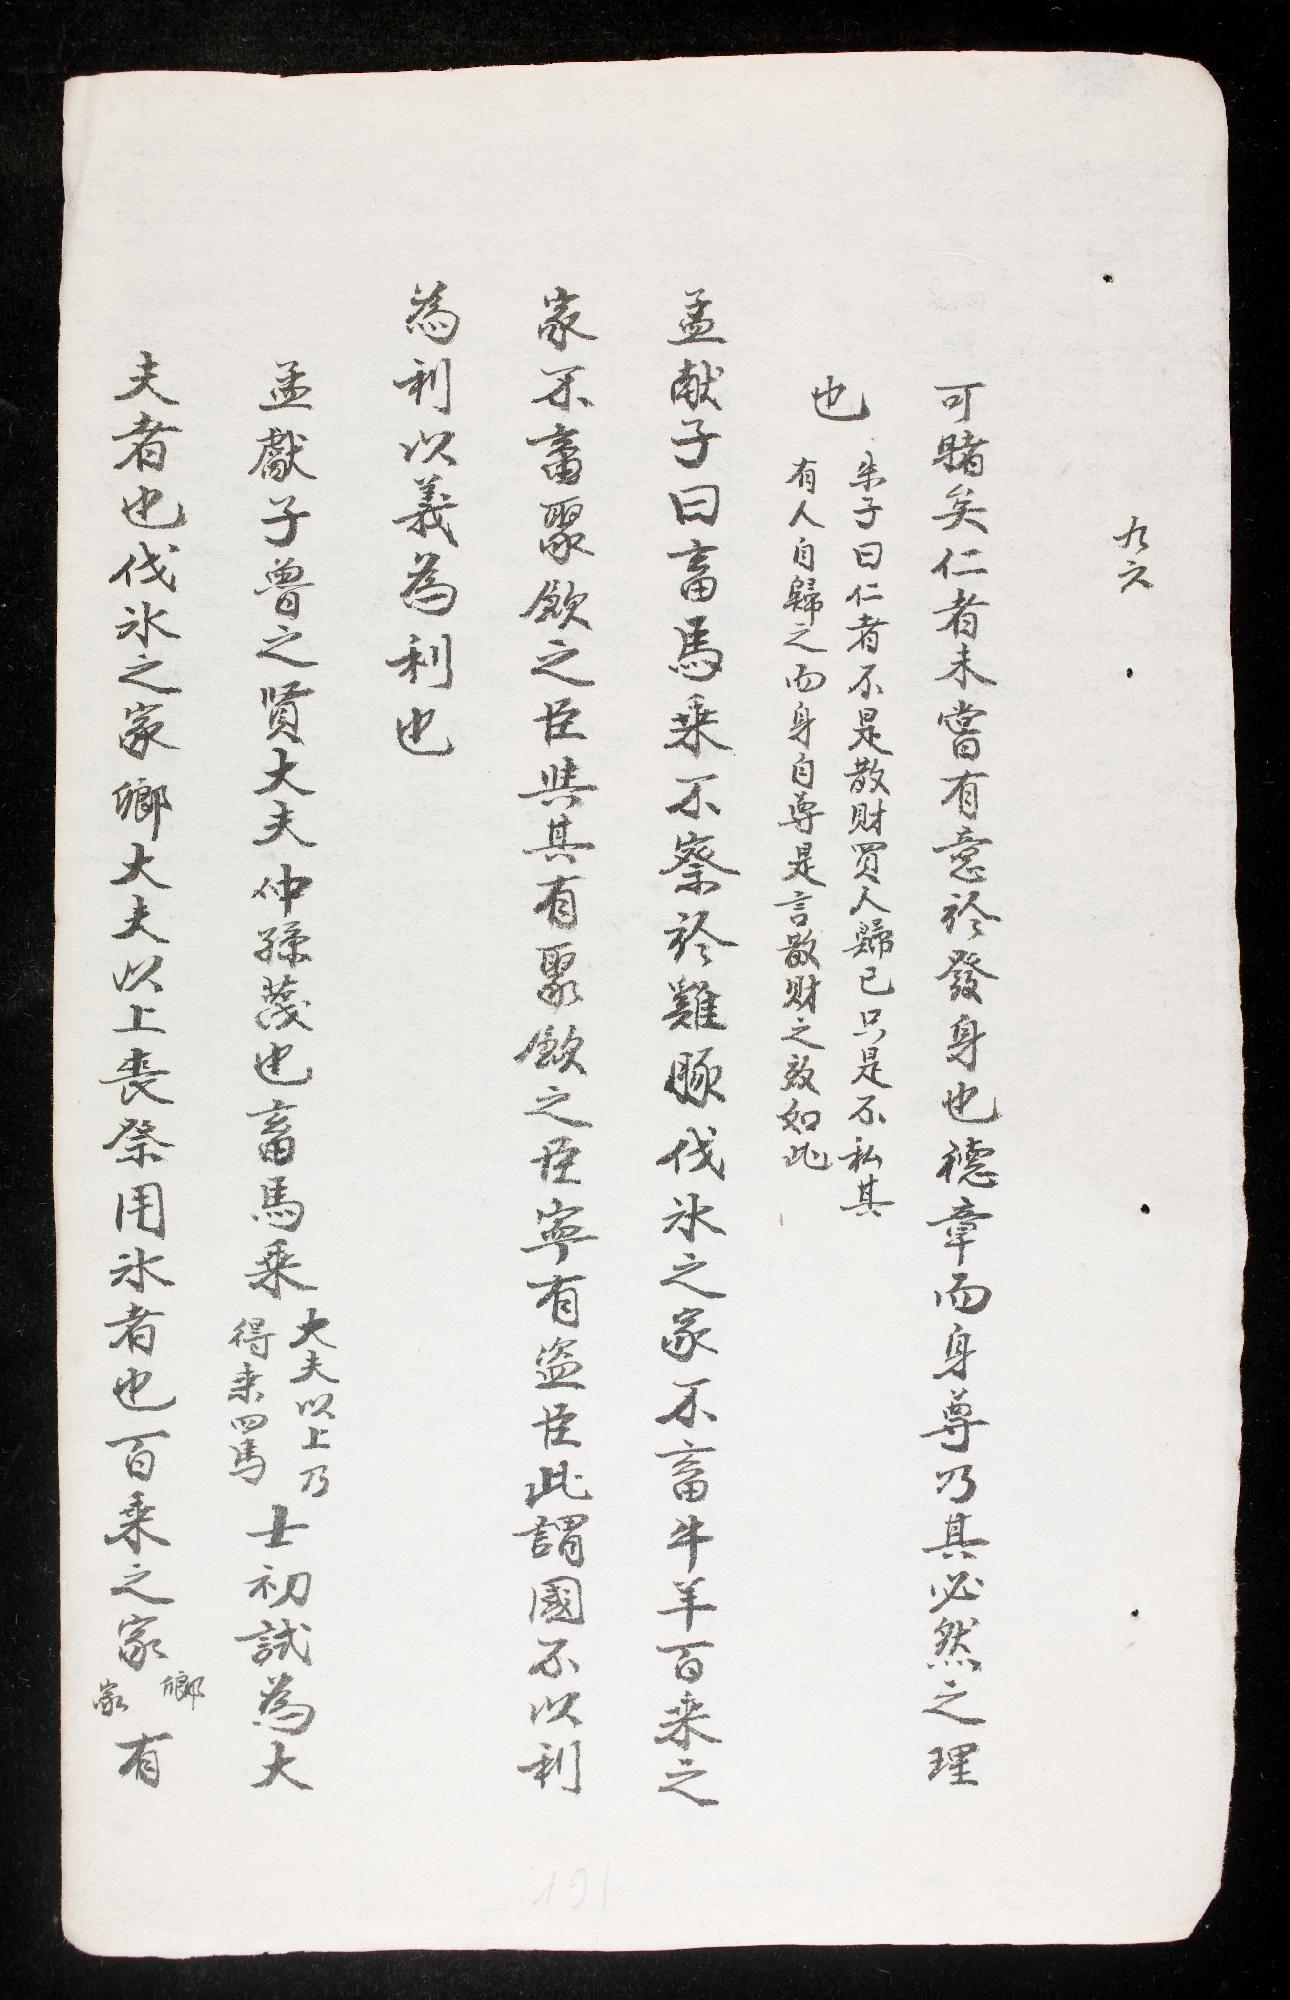 九六
可賭矣仁者未嘗有意於發身也德章而身尊乃其必然之理
也
朱子曰仁者不是散財買人歸己只是不私其
有人自歸之而身自尊是言散財之效如此
孟献子曰畜馬乗不察於雞豚伐氷之家不畜牛羊百乗之
家不畜聚斂之臣與其有聚斂之臣寧有盗臣此謂國不以利
為利以義為利也
孟獻子魯之賢大夫仲孫蔑也畜馬乗
大夫以上乃
得乗四馬
士初試為大
夫者也伐氷之家卿大夫以上喪祭用氷者也百乗之家
卿
家
有
191